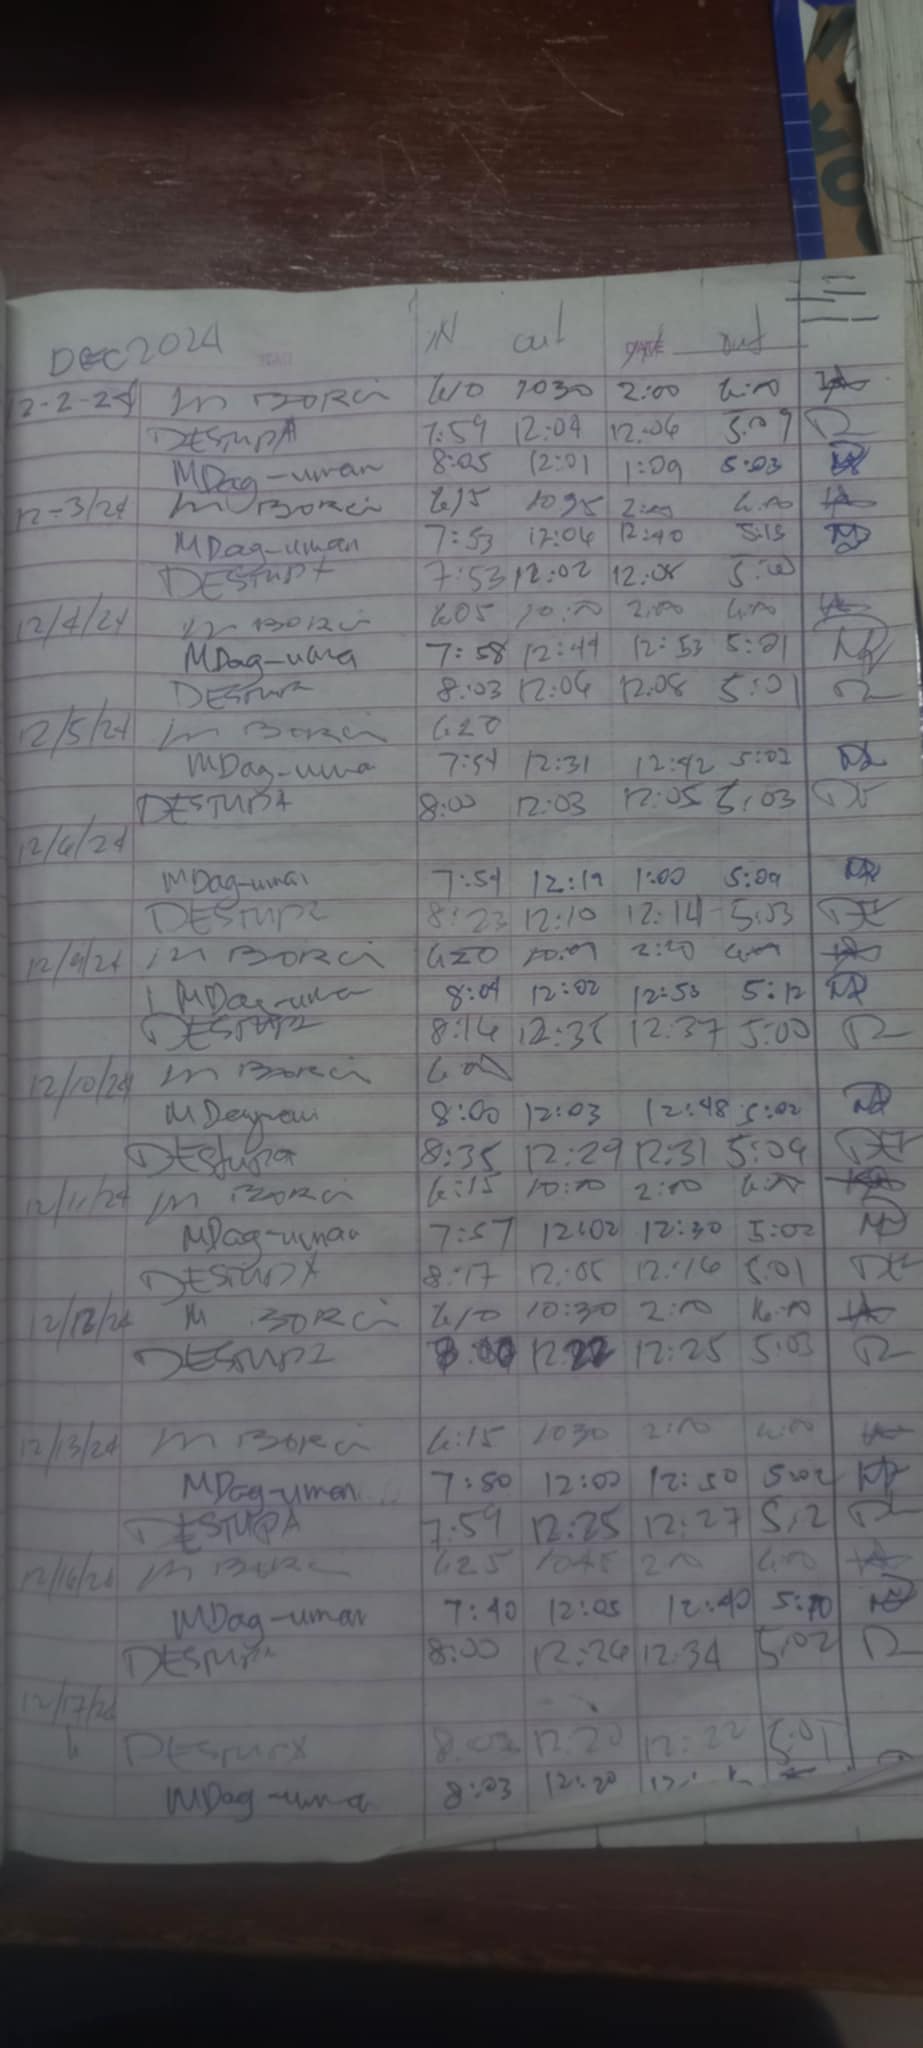 DEC 2024 IN out DATE out
12-2-24 M BORCI 610 1030 2:00 6:00
DESTUPA 7:59 12:04 12:06 5:09
MDag-uman 8:05 12:01 1:09 5:03
12-3/24 M BORCI 615 2:00 6:00
MDag-uman 7:53 12:04 12:40 5:15
DESTUPA 7:53 12:02 12:08
12/4/24 M BORCI 605 10:00 2:00 6:00
MDag-uma 7:58 12:49 12:53 5:01
DESTUPA 8:03 12:06 12:08 5:01
12/5/24 M BORCI 620
MDag-uma 7:54 12:31 12:42 5:02
DESTUPA 8:00 12:03 12:05 5:03
12/6/24
MDag-uman 7:54 12:19 1:00 5:09
DESTUPA 8:23 12:10 12:14 5:03
12/9/24 M BORCI 620 2:20
MDag-uma 8:04 12:02 12:53 5:12
DESTUPA 8:14 12:35 12:37 5:00
12/10/24 M BORCI 6:00
8:00 12:03 12:48 5:02
DESTUPA 8:35 12:29 12:31 5:09
12/11/24 M BORCI 6:15 10:00 2:00 6:00
MDag-uman 7:57 12:02 12:30 5:02
DESTUPA 8:17 12:05 12:16 5:01
M BORCI 6:10 10:30 2:00 6:00
DESTUPA 12:22 12:25 5:03
12/13/24 M BORCI 6:15 1030 2:00 6:00
MDag-uman 7:50 12:00 12:50 5:02
DESTUPA 7:59 12:25 12:27 5:2
12/16/24 M BORCI 625 2:00 6:00
MDag-uman 7:40 12:05 12:40 5:10
DESTUPA 8:00 12:26 12:34 5:02
12/17/24
DESTUPA 8:02 12:20 12:22 5:01
MDag-uma 8:03 12:20